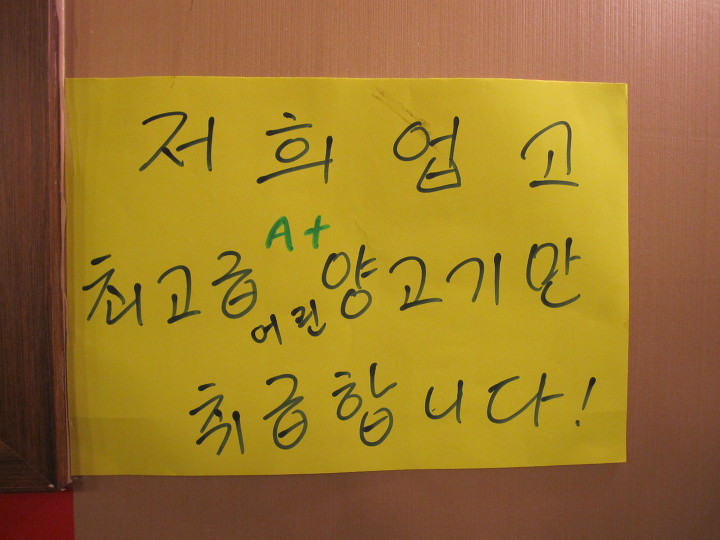 저희업고
최고급 A+ 어린 양고기만
취급합니다!